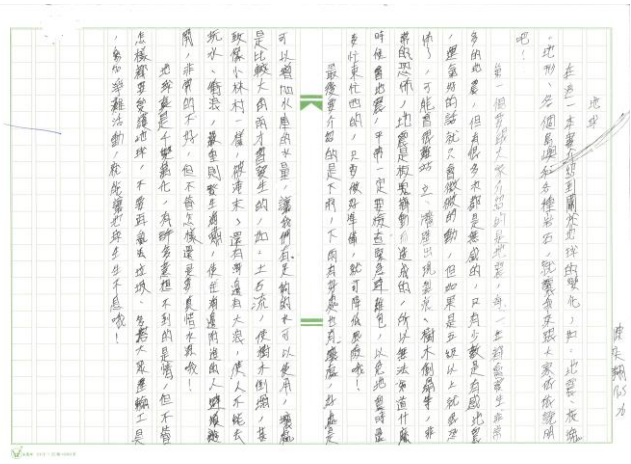 地球
在這一本書有介紹到關於地球的變化,如:地震、板塊
、地形、各個島嶼和各種岩石,就讓我來跟大家依依說明
吧!
第一個要跟大家介紹的是地震,每一年地球會發生非常
多的地震,但有很多次都是無感的,只有少數是有感地震
,運氣好的話就只會微微的動,但如果是五級以上就很恐
怖了,可能會很難站立、牆壁出現裂紋、樹木倒塌等,非
常的恐怖,地震是板塊移動所造成的,所以無法知道什麼
時候會地震,平常一定要檢查緊急避難包,以免地震時還
要忙東忙西的,只要做好準備,就可降低風險哦!
最後要介紹的是下雨,下雨有好處也有壞處,好處是
可以增加水庫的水量,讓我們有足夠的水可以使用,壞處
是比較大的雨才會發生的,如:土石流,使樹木倒塌,甚
致像小林村一樣,被淹沒了還有海邊有大浪,使人不能去
玩水、衝浪,嚴重則發生海嘯,使在海邊附近的人
,非常的不好,但不管怎樣還是要珍惜水源哦!
地球真是千變萬化,有許多意想不到的事情,但不管
怎樣都要愛護地球,不要再亂丟垃圾、
,參加淨灘活動,就能讓地球生生不息哦!